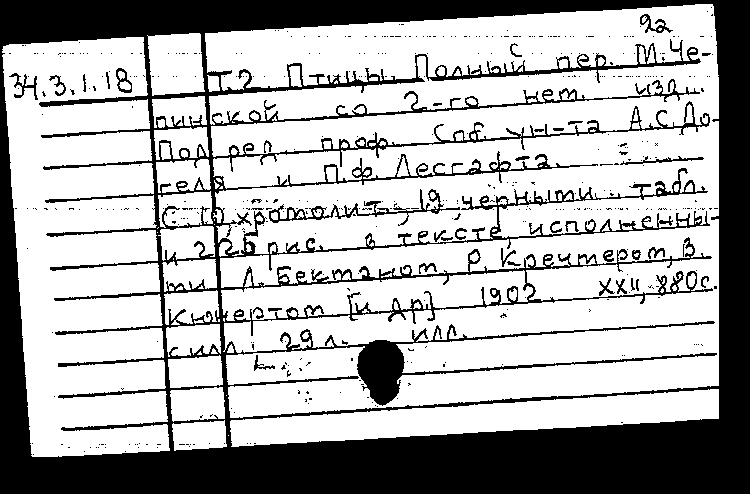 2а
34.3.1.18 Т.2. Птицы. Полный с пер. М.Че-
пинской со 2-го нет. изд.
Под ред. проф. Спб. ун-та А.С.До-
геля и П.Ф.Лесгафта.
С 10 хромолит., 19 черными табл.
и 225 рис. в тексте, исполненны-
ми Л. Бекманом, Р. Кречмером, В.
Кюнертом [и др.] 1902. XXII, 880с.
с илл.; 29 л. илл.